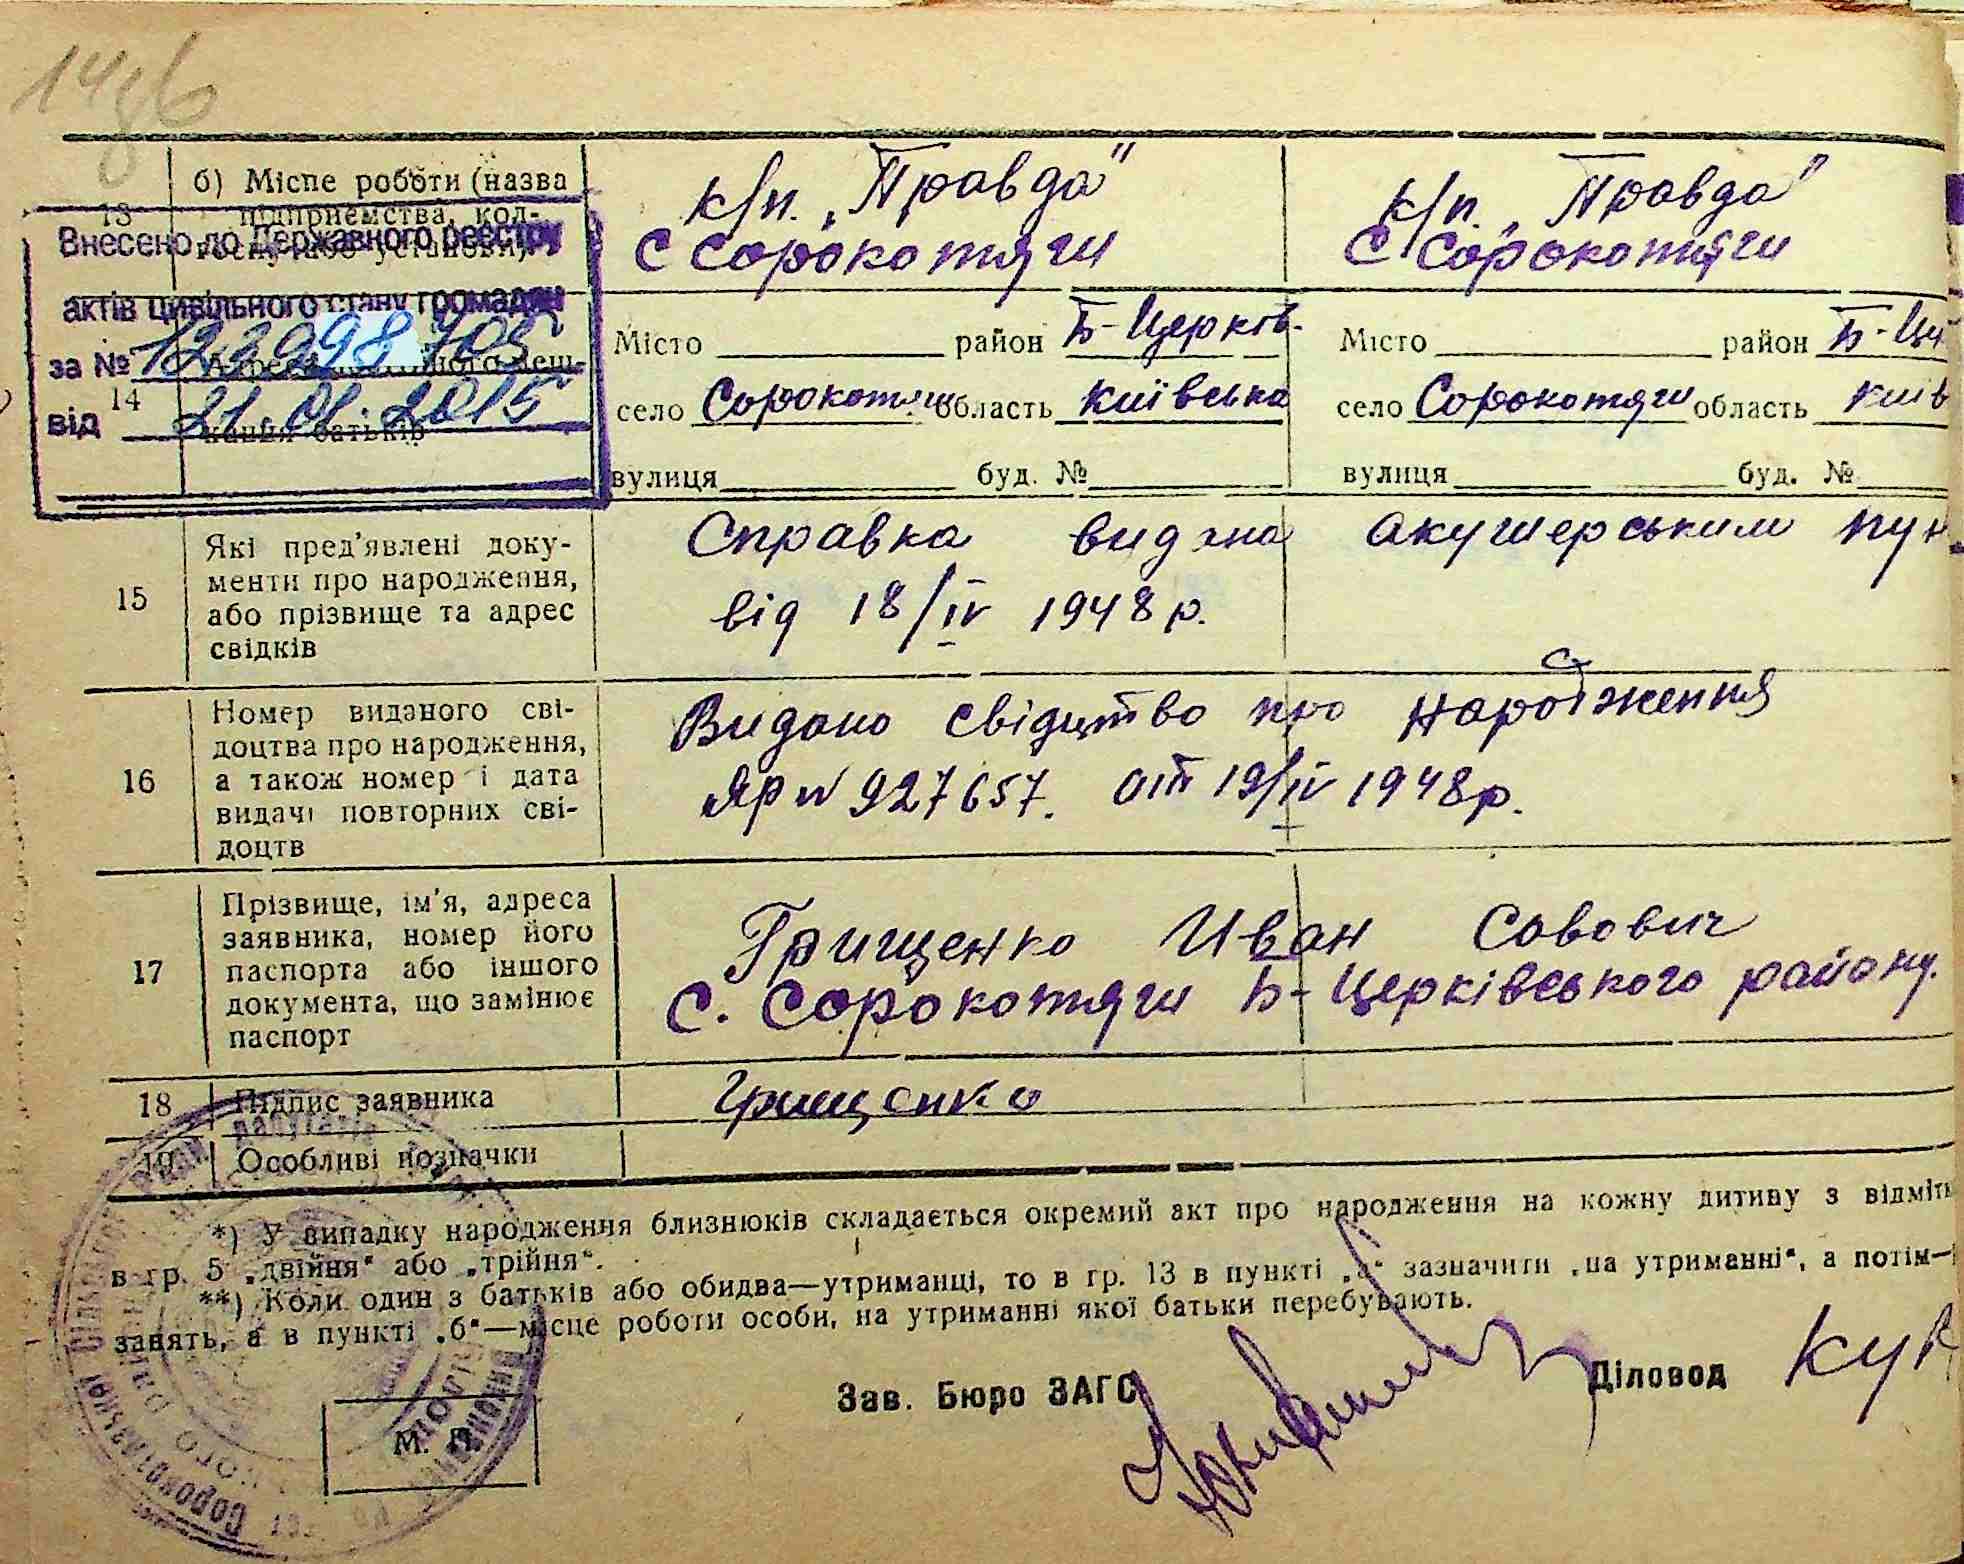 13
б) Місце роботи (назва
підприємства, кол-
госпу або установи)
к/п. „Правда"
с Сорокотяги
к/п. „Правда"
с Сорокотяги
Внесено до Державного реєстру
актів цивільного стану громадян
за №
від 21.01.2015
14
Місто район Б-Церків.
село Сорокотяги область Київська
вулиця буд. №
Місто район Б-Це
село Сорокотяги область Київ
вулиця буд. №
15
Які пред'явлені доку-
менти про народження,
або прізвище та адрес
свідків
Справка видана акушерським пун
від 18/IV 1948 р.
16
Номер виданого сві-
доцтва про народження,
а також номер і дата
видачі повторних сві-
доцтв
Видано свідцтво про народження
ЯР № 927657. от 19/IV 1948 р.
17
Прізвище, ім'я, адреса
заявника, номер його
паспорта або іншого
документа, що замінює
паспорт
Грищенко Иван Савович
с. Сорокотяги Б-Церківського району.
18
Підпис заявника
Грищенко
19
Особливі позначки
*) У випадку народження близнюків складається окремий акт про народження на кожну дитину з відміт
в гр. 5 „двійня" або „трійня".
**) Коли один з батьків або обидва—утриманці, то в гр. 13 в пункті „а" зазначити „на утриманні", а потім—
занять, а в пункті „б"—місце роботи особи, на утриманні якої батьки перебувають.
Зав. Бюро ЗАГС
Діловод
М. П.